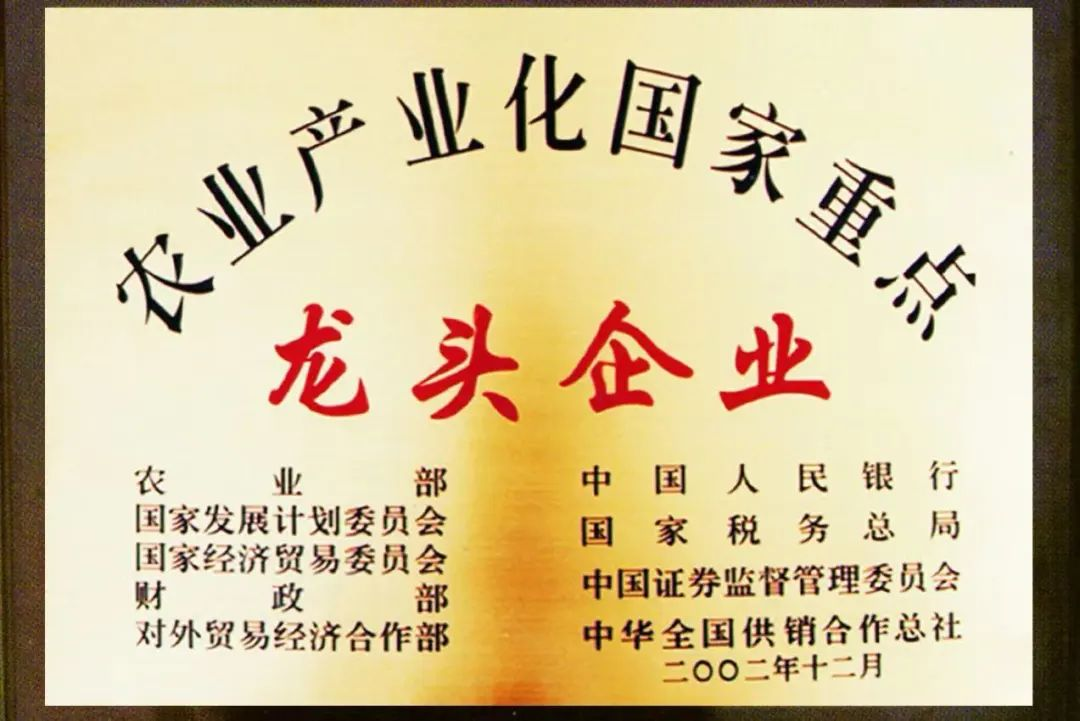 农业产业化国家重点
龙头企业
农业部
国家发展计划委员会
国家经济贸易委员会
财政部
对外贸易经济合作部
中国人民银行
国家税务总局
中国证券监督管理委员会
中华全国供销合作总社
二〇〇二年十二月